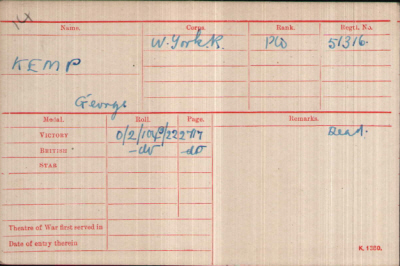 Name. Corps. Rank. Regtl. No.
W. York. R. Pte 51316.
KEMP
George
Medal. Roll. Page. Remarks.
VICTORY 2717 Dead.
BRITISH -do- -do-
STAR
Theatre of War first served in
Date of entry therein
K. 1380.